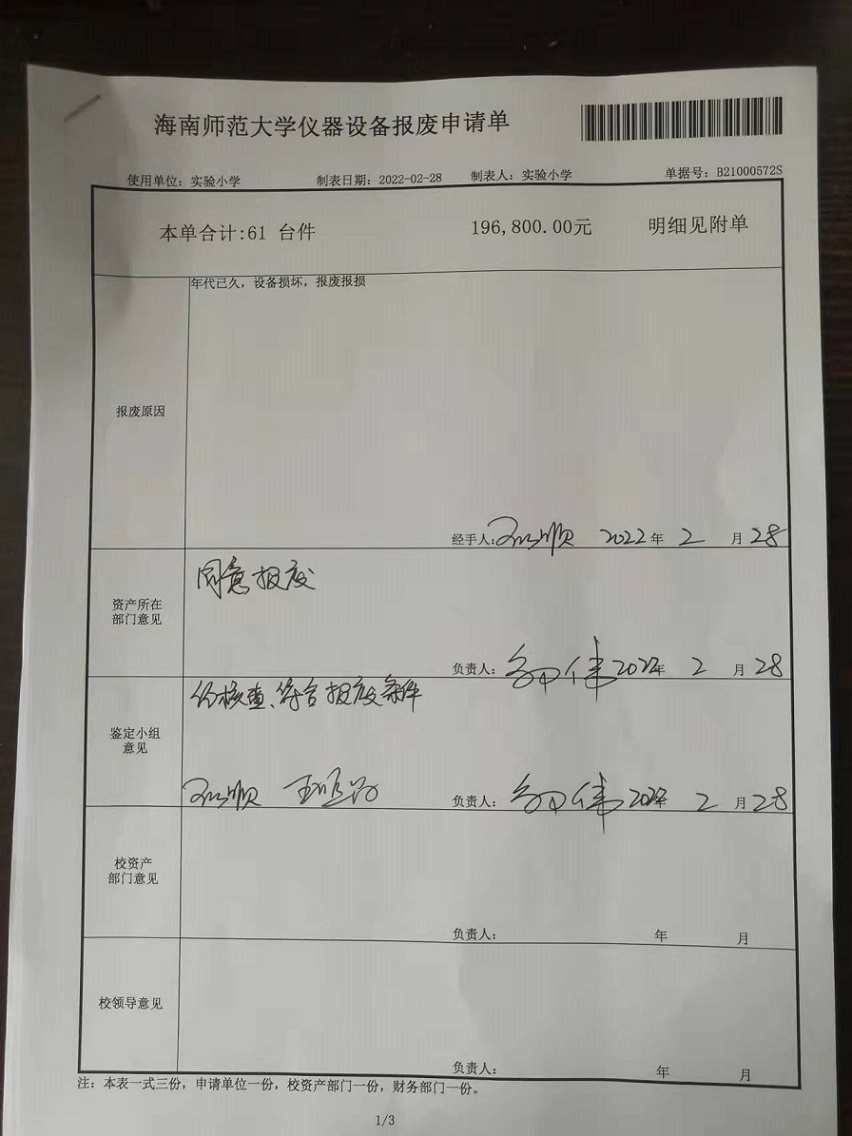 海南师范大学仪器设备报废申请单
使用单位：实验小学 制表日期：2022-02-28 制表人：实验小学 单据号：B21000572S
本单合计:61 台件 196,800.00元 明细见附单
年代已久，设备损坏，报废报损
报废原因
经手人: 2022 年 2 月 28
同意报废
资产所在
部门意见
负责人： 2022年 2 月 28
经核查、符合报废条件
鉴定小组
意见
负责人： 2022年 2 月 28
校资产
部门意见
负责人： 年 月
校领导意见
负责人： 年 月
注：本表一式三份，申请单位一份，校资产部门一份，财务部门一份。
1/3